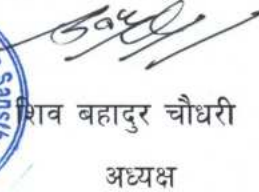 शिव बहादुर चौधरी
अध्यक्ष